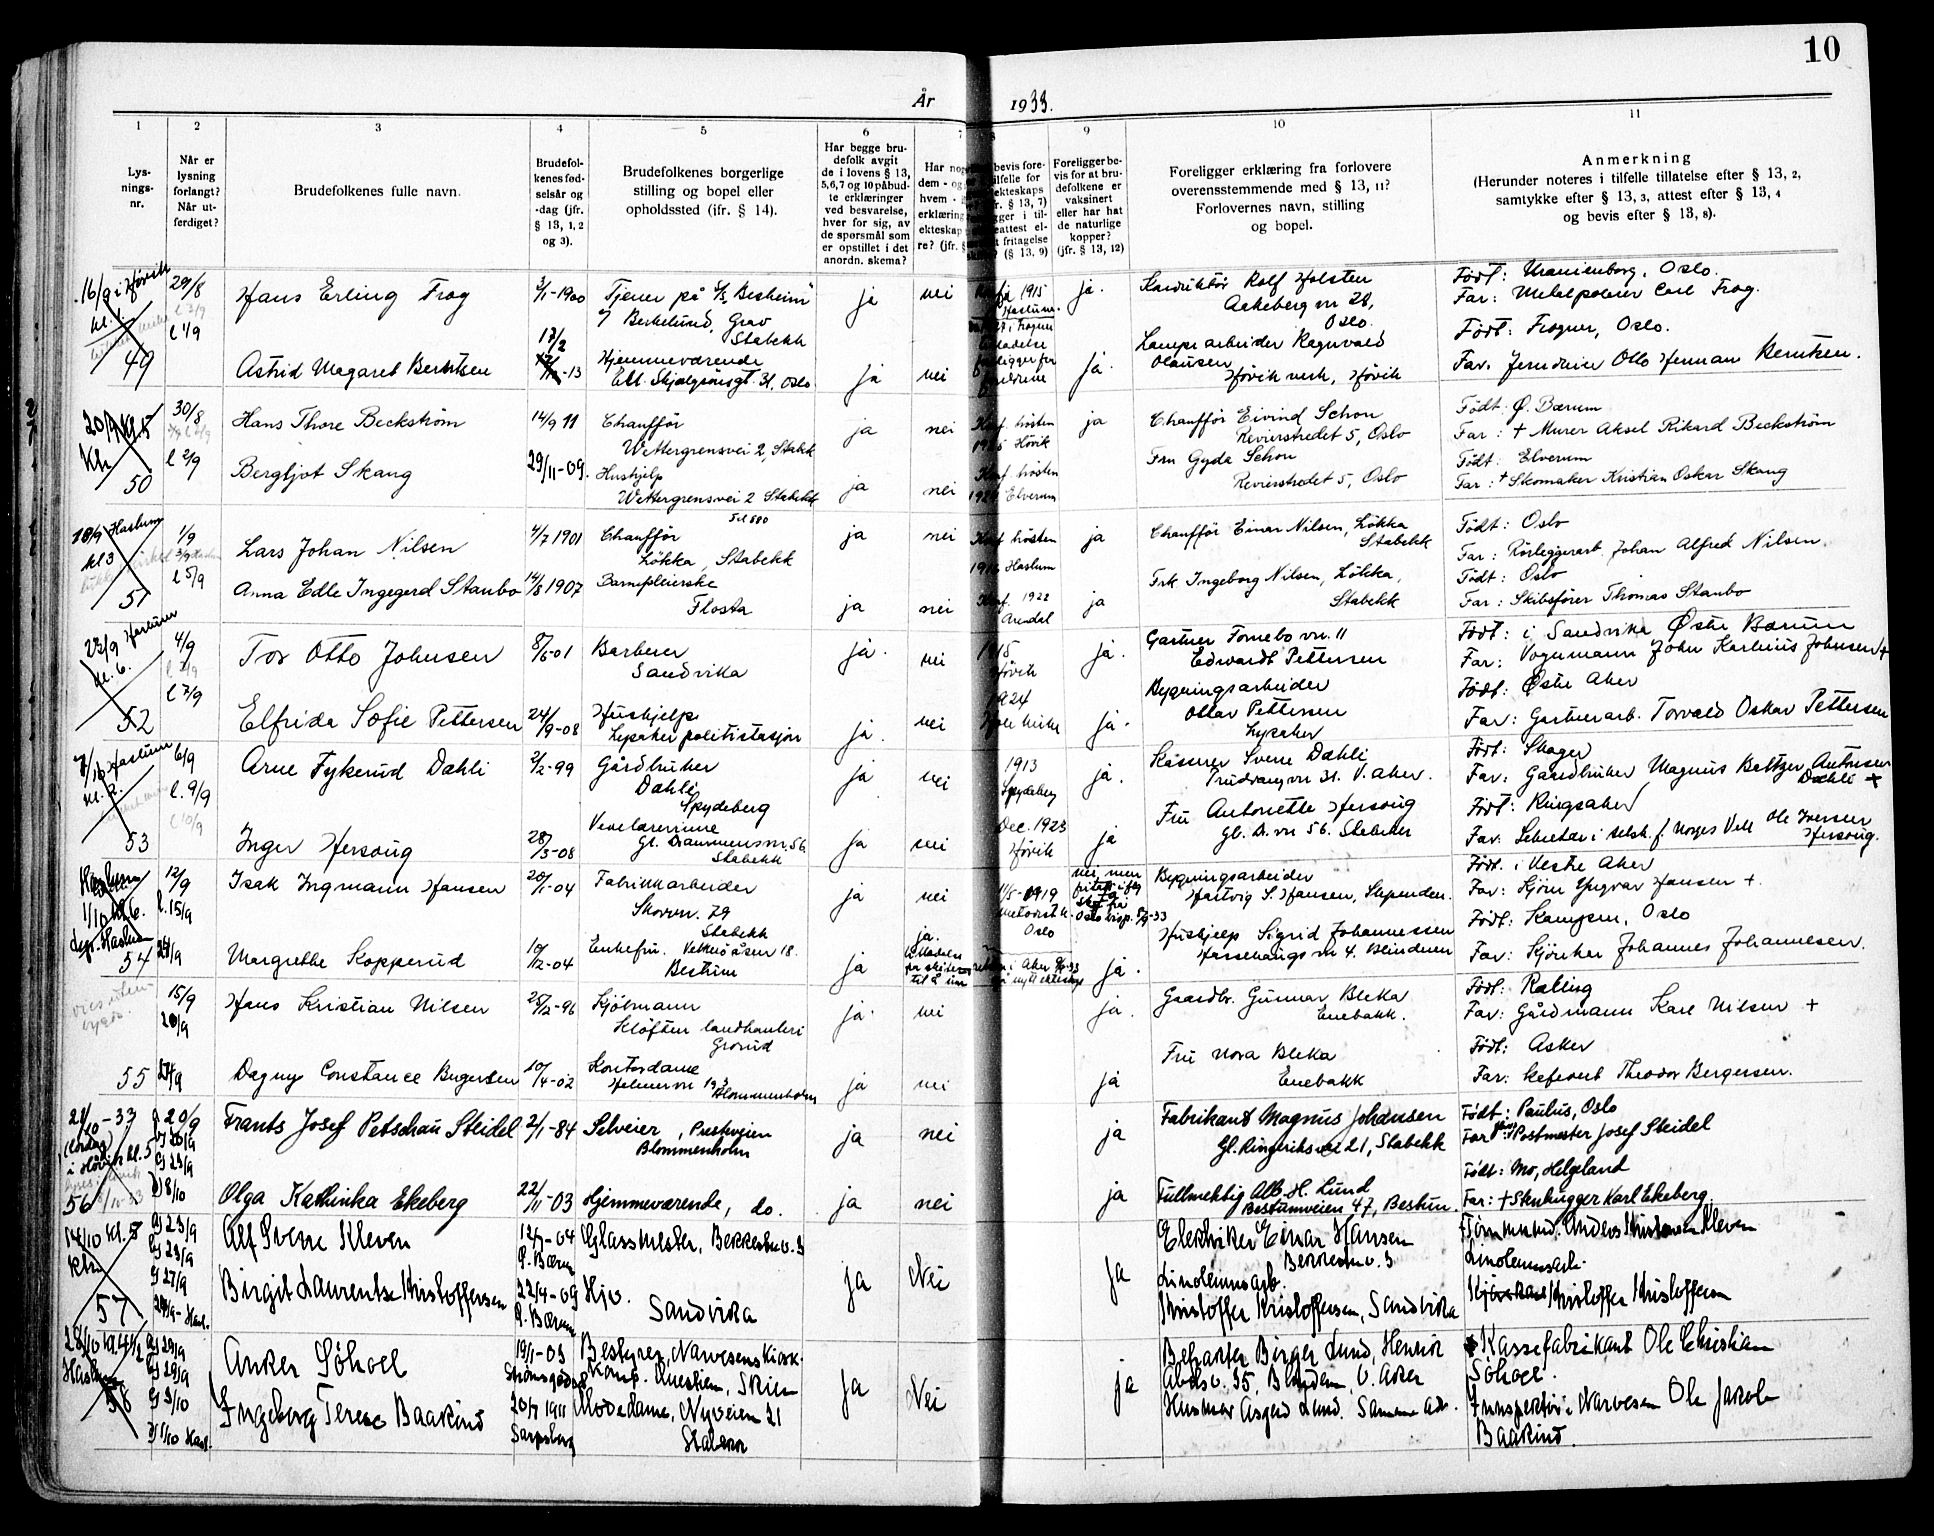 10
År 1933.
1
2
3
4
5
6
7
9
10
11
Lys-
nings-
nr.
Når er
lysning
forlangt?
Når ut-
ferdiget?
Brudefolkenes fulle navn.
Brudefol-
kenes fød-
selsår og
-dag (jfr.
§ 13, 1, 2
og 3).
Brudefolkenes borgerlige
stilling og bopel eller
opholdssted (ifr. § 14).
Har begge bru-
defolk avgit
de i lovens § 13,
5, 6, 7 og 10 påbud-
te erklæringer
ved besvarelse,
hver for sig, av
de spørsmål som
er opstillet i det
anordn. skema?
Foreligger be-
vis for at bru-
defolkene er
vaksinert
eller har hat
de naturlige
kopper?
(jfr. § 13, 12)
Foreligger erklæring fra forlovere
overensstemmende med § 13, 11?
Forlovernes navn, stilling
og bopel.
Anmerkning
(Herunder noteres i tilfelle tillatelse efter § 13, 2,
samtykke efter § 13, 3, attest efter § 13, 4
og bevis efter § 13, 8).
49
29/8
Hans Erling Frog
3/1-1900
Tjener på
Stabekk
ja
nei
1915
ja.
Konduktør Rolf Holsten
Aakeberg vn 28,
Oslo.
Født: Uranienborg, Oslo.
Far: Metalpolerer Carl Frog.
l 1/9
Astrid Magaret Berntsen
17/2
-13
Hjemmeværende
Oslo
ja
nei
ja.
Lampearbeider Ragnvald
Olausen
Høvik verk, Høvik
Født: Frogner, Oslo.
Far: Jerndreier Otto Herman Berntsen.
50
30/8
Hans Thore Beckstrøm
14/9 11
Chauffør
Wettergrensvei 2, Stabekk
ja
nei
Konf. høsten
Høvik
ja
Chauffør Eivind Schou
Revierstredet 5, Oslo
Født: Ø. Bærum
Far: + Murer Aksel Rikard Beckstrøm
l 2/9
Bergljot Skaug
29/11-09.
Hushjelp
Wettergrensvei 2 Stabekk
ja
nei
Konf. høsten
Elverum
Fru Gyda Schou
Revierstredet 5, Oslo
Født: Elverum
Far: + Skomaker Kristian Oskar Skaug
18/9 Haslum
kl 3
51
1/9
Lars Johan Nilsen
4/7 1901
Chauffør
Løkka, Stabekk
ja
nei
Konf. høsten
Haslum
ja
Chauffør Einar Nilsen, Løkka
Stabekk
Født: Oslo
Far: Rørleggerarb. Johan Alfred Nilsen.
l 5/9
Anna Edle Ingegerd Staubo
14/8 1907
Barnepleierske
Flosta
ja
nei
Konf. 1922
Arendal
ja
Frk Ingeborg Nilsen, Løkka,
Stabekk
Født: Oslo
Far: Skibsfører Thomas Staubo
23/9 Haslum
kl. 6.
52
4/9
Tor Otto Johnsen
8/6-01
Barberer
Sandvika
ja.
nei
1915
Høvik
ja.
Gartner Fornebo vn. 11
Edvardt Pettersen
Født: i Sandvika Østre Bærum
Far: Vognmann John Karlenius Johnsen +
l 7/9
Elfrida Sofie Pettersen
24/9-08
Hushjelp
Lysaker politistasjon
ja.
nei
1924
ja.
Bygningsarbeider
Ottar Pettersen
Lysaker
Født: Østre Aker
Far: Gartnerarb. Torvald Oskar Pettersen
7/10 Haslum
kl. 2.
53
6/9
Arne Fykerud Dahli
2/2-99
Gårdbruker
Dahli
Spydeberg
ja
nei
1913
Spydeberg
ja.
Kasserer Sverre Dahli
Trudvang vn 31. V. Aker.
Født: Skager
Far: Gaardbruker Magnus Baltzer Antonsen
Dahli +
l. 9/9
l 10/9
Inger Hersoug
28/3-08
Vevelærerinne
Gl. Drammensvn. 56.
Stabekk
ja
nei
Dec. 1923
Høvik
ja
Fru Antonette Hersoug
Gl. D. vn 56. Stabekk
Født: Ringsaker
Far: Sekretær i selsk. f. Norges Vel Ole Iversen
Hersoug.
1/10 kl 6.
54
12/9
l. 15/9
Isak Ingmann Hansen
20/1-04
Fabrikkarbeider
Skovvn. 79
Stabekk
ja
nei
11/5-1919
Metodistk.
Oslo
nei, men
Oslo bisp.
Bygningsarbeider
Hartvig S. Hansen, Stupenden.
Født: i Vestre Aker
Far: Kjørm Yngvar Hansen +.
Margrethe Kopperud
10/12-04
Enkefru. Vækerøåsen 18.
Bestum
ja
ja.
ja.
Hushjelp Sigrid Johannessen
Hasselhaugv 4. Blindern
Født: Kampen, Oslo
Far: Kjører Johannes Johannesen.
55
15/9
20/9
Hans Kristian Nilsen
25/12-96
Kjølmann
Kløften landhandleri
Grorud
ja.
nei
ja.
Gaardbr. Gunnar Bleka
Enebakk.
Født: Rælling
Far: Gårdmann Karl Nilsen +
Dagny Constance Bergersen
10/4-02
Kontordame
Blommenholm
ja
nei
ja
Fru Nora Bleka
Enebakk
Født: Asker
Far: Theodor Bergersen.
21/10-33
(Lørdag)
i Høvik kl. 5
56
20/9
Frants Josef Petschau Steidel
2/1-84
Selveier, Prestveien
Blommenholm
ja
nei
ja
Fabrikant Magnus Johansen
Gl. Ringeriksvei 21, Stabekk
Født: Paulus, Oslo
Far: Postmester Josef Steidel
8/10
Olga Kathinka Ekeberg
22/11-03
Hjemmeværende, do.
ja
nei
ja
Fullmektig Alb. H. Lund
Bestumveien 47, Bestun.
Født: Mo, Helgeland
Far: + Stenhugger Karl Ekeberg.
14/10 kl. 5
57
23/9
Alf Sverre Kleven
12/7-04
Ø. Bærum
Glassmester, Bekkestuv. 3
ja
Nei
ja
Elektriker Einar Hansen
Bekkestuv. 3
Tømmermd. Anders Kristensen Kleven
27/9
Birgit Laurentze Kristoffersen
22/4-09
Ø. Bærum
Hjv.
Sandvika
Linoleumsarb.
Kristoffer Kristoffersen, Sandvika
Linoleumsarb.
Kristoffer Kristoffersen
28/10 kl. 4 1/2
Haslum
58
29/9
Anker Söhoel
19/1-03
Bestyrer, Narvesens Kiosk-
komp. Skien
ja
Nei
ja
Befrakter Birger Lund, Henrik
Ibsens v. 35, Blindern, V. Aker
Kassefabrikant Ole Christian
Söhoel.
3/10
Ingeborg Terese Baakind
20/7 1911
Sarpsborg
Motedame, Nyveien 21
Stabekk
Husmor Asgerd Lund. Samme adr.
Inspektør i Narvesen Ole Jakob
Baakind.